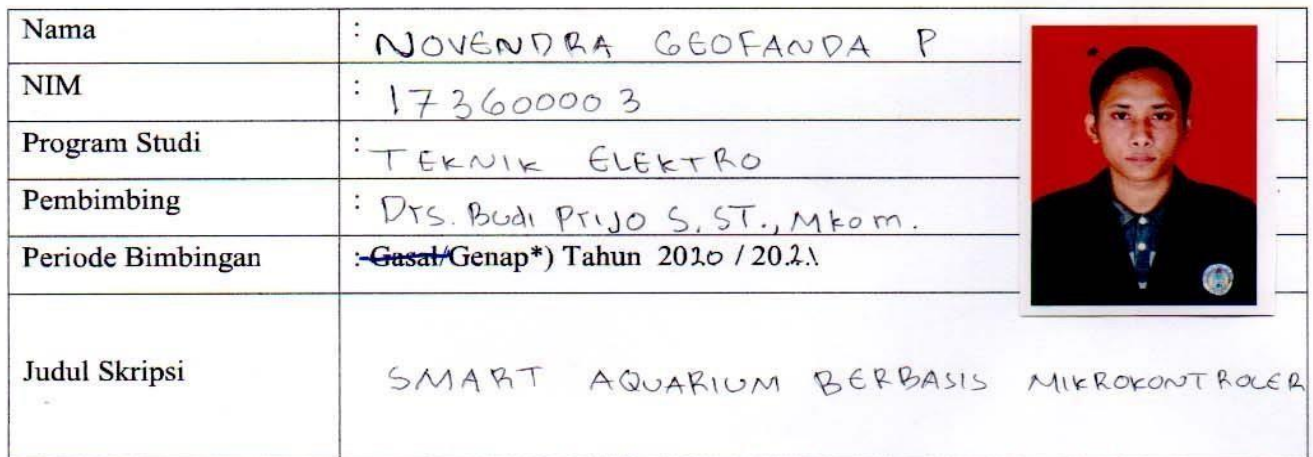 Nama : NOVENDRA GEOFANDA P
NIM : 173600003
Program Studi : TEKNIK ELEKTRO
Pembimbing : Drs. Budi Prijo S, ST., Mkom.
Periode Bimbingan : Gasal/Genap*) Tahun 2020 / 2021
Judul Skripsi SMART AQUARIUM BERBASIS MIKROKONTROLER